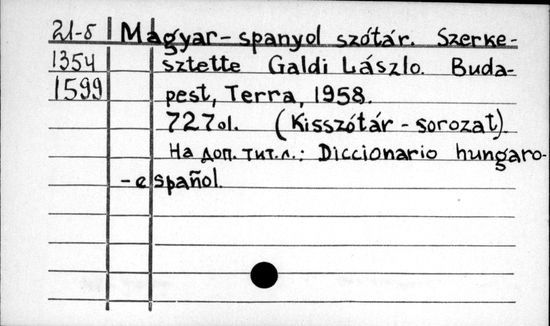 21-5 Magyar-spanyol szótár. Szerke-
1354 sztette Galdi László. Buda-
1599 pest, Terra, 1958.
727 ol. (Kisszótár-sorozat).
На доп. тит.л.: Diccionario hungaro-
-español.